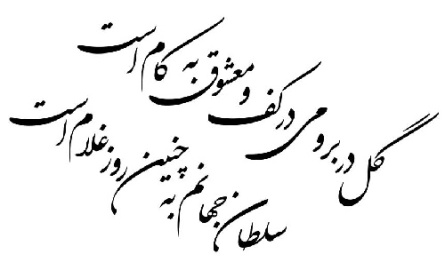 گل در بر و می در کف و معشوق به کام است
سلطان جهانم به چنین روز غلام است